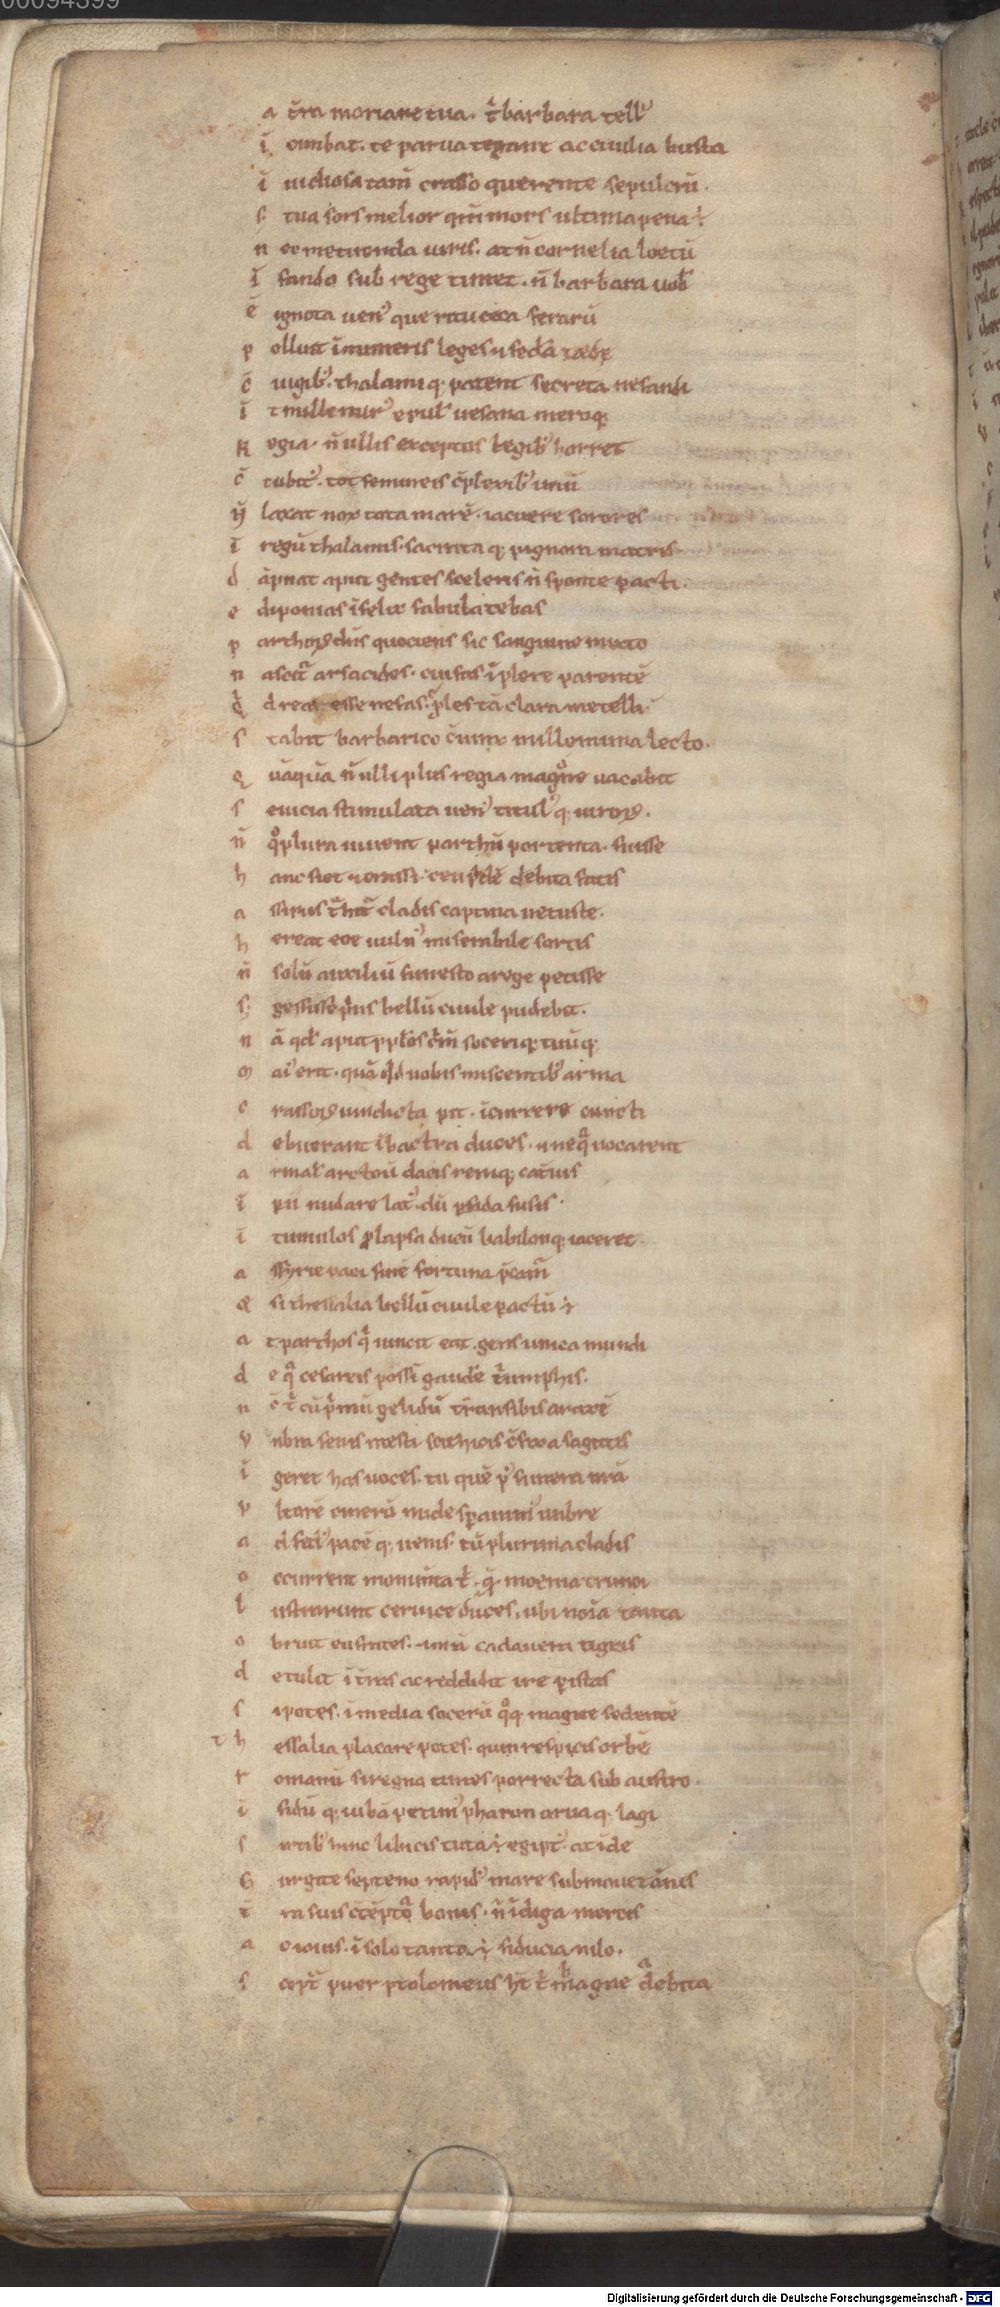 00094399
a t̄ra moriare tua. t̄ barbara tell᷒
ī cumbat. te parua tegant ac ciuilia busta
ī uidiosa tam̄ crasso querente sepulcrū.
s tua sors melior qm̄ mors ultima pena ÷
n ec metuenda uiris. at n̄ cornelia loetū
ī fando sub rege timet. n̄ barbara nob̄
ē ignota uen᷒ que ritu ceca ferarū
p olluit īnumeris leges ⁊ feda tedę
c̄ iugib᷒. thalamiq; patent secreta nefandi
ī t mille nur᷒ epul̄ uesana meroq;
R egia. n̄ ullis exceptos legib᷒ horret
c̄ cubit᷒. tot femineis c̄plexib᷒ unū
n̄ laxat nox tota marē. iacuere sorores
ī regū thalamis. sacrata q; pignora matris
d āpnat aput gentes sceleris n̄ sponte pacti.
e diponias īfelix fabula tebas
p arthoꝝ dn̄s quociens sic sanguine mixto
n ascit᷒ arsacides. cui fas īplere parentē
q̄ d rear esse nefas. ꝓles tā clara metelli
s tabit barbarico c̄iunx millesima lecto.
q uāquā n̄ ulli plus regia magne uacabit
s euicia stimulata uen᷒ titul᷒ q; uiroꝝ.
n̄ qͦ plura iuuent parthū portenta. fuisse
h anc sciet
a
h ereat eoe uuln᷒ miserabile sortis
n̄ solū auxiliū funesto a rege petisse
s; gessisse pͥus bellū ciuile pudebit.
n ā qd̄ aput ppl̄os c̄m̄ soceriq; tuūq;
m ai᷒ erit. quā qd̄ uobis miscentib᷒ arma
c rassoꝝ uindicta pit. īcurrere cuncti
d ebuerant ī bactra duces. ⁊ ne qͣ uocarent
a rma l̄ arctoū dacis renīq; cat᷒uis
ī pii nudare lat᷒. dū ꝑfida susis
ī tumulos ꝓlapsa ducū babilonq; iaceret.
a ssyrie paci finē fortuna p̄cam̄
⁊ si thessalia bellū ciuile pactū ÷
a t parthos q̄ uincit eat. gens unica mundi
d e qͣ cesareis possī gaudē t͛umphis.
n ō t͛ cū pͥmū gelidū t̄nsibis araxē
v mbra senis mesti scithicis c̄fixa sagittis
ī geret has uoces. tu quē pͦ funera n̄rā
v ltorē cinerū nude spauim᷒ umbre
a d fed᷒ pacē q; uenis. tū plurima cladis
o ccurrent monim̄ta t͛. q̄. moenia trunci
l ustrarunt ceruice duces. ubi noīa tanta
o bruit eufrates. ⁊ n̄rā cadauera tigris
d etulit ī t̄ras ac reddidit ire ꝑ istas
s i potes. ī media socerū qͦq; magne sedentē
t h essalia placare potes. quin respicis orbē
r omanū si regna times porrecta sub austro.
ī fidū q; iubā petim᷒ pharon aruaq; lagi
s irtib᷒ hinc libicis tuta ÷ egipt᷒. at īde
G urgite septeno rapid᷒ mare submouet āmis
t̄ ra suis c̄tēpta bonis. n̄ īdiga mercis
a o iouis. ī solo tanta ÷ fiducia nilo.
s cept᷒ puer ptolomeus ht̄ t͛ magne debita
Digitalisierung gefördert durch die Deutsche Forschungsgemeinschaft - DFG